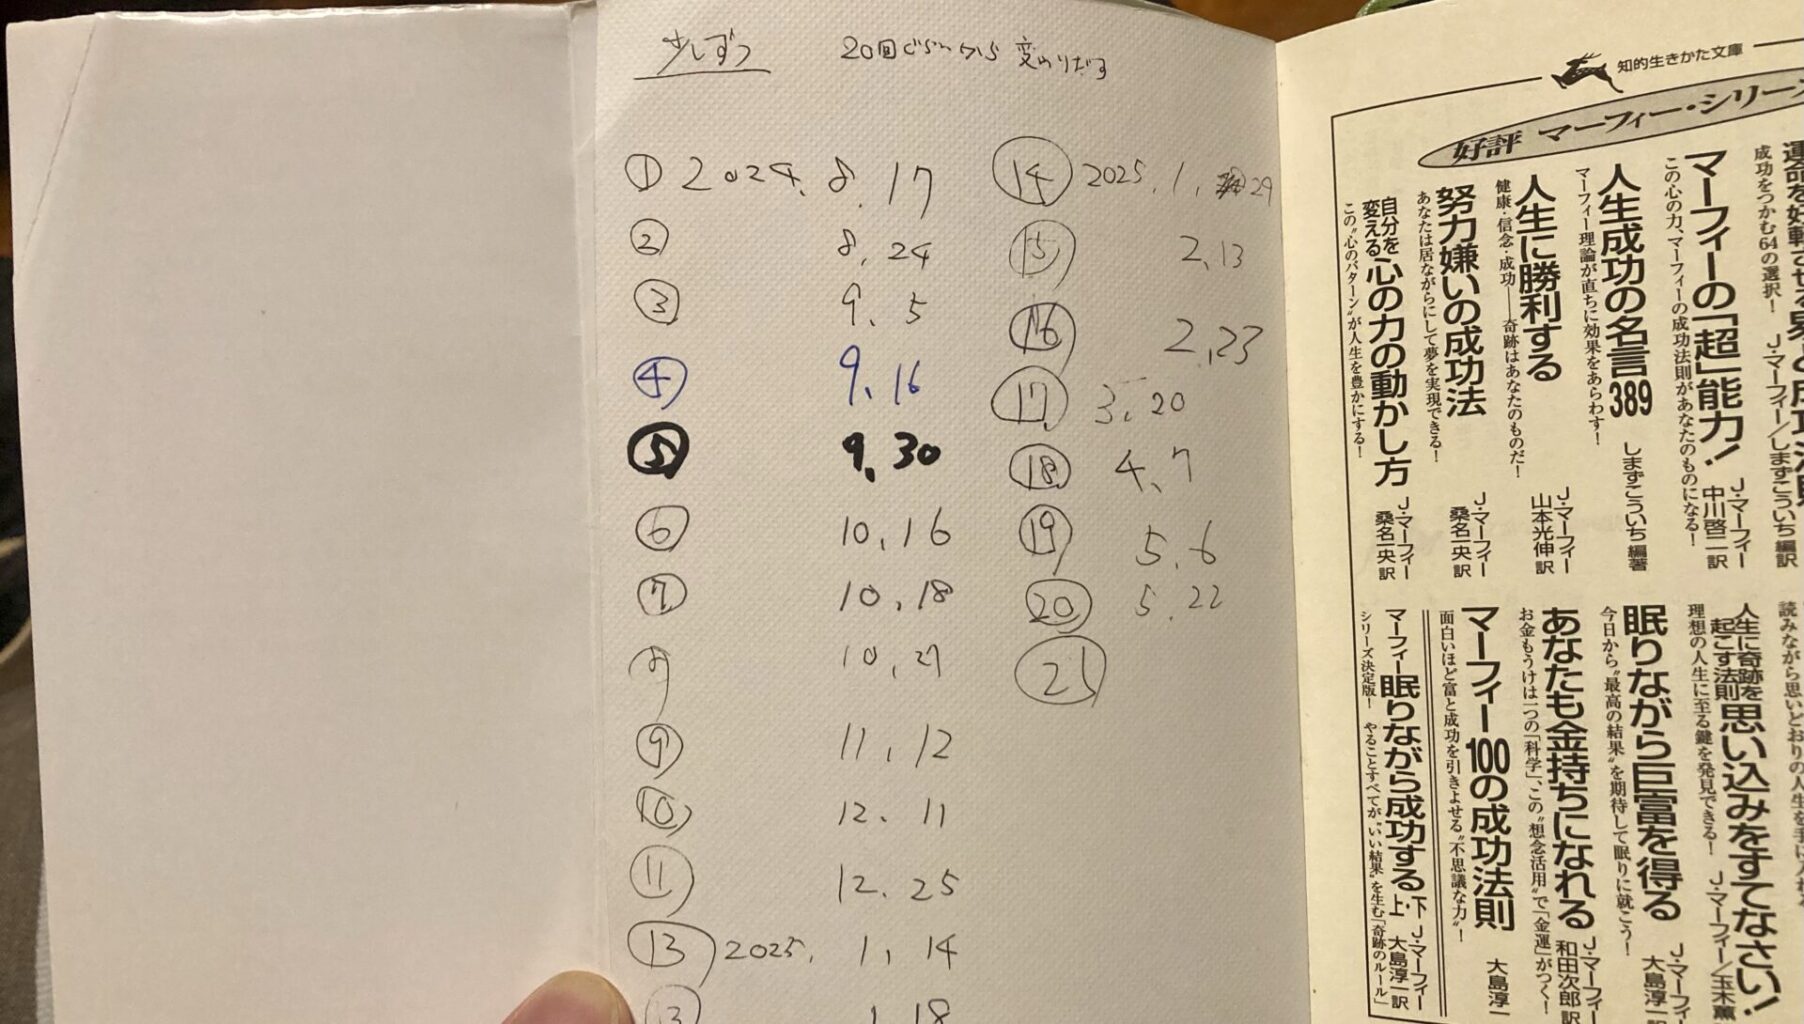 少しずつ
20回ぐらいから 変わりだす
① 2024. 8. 17
② 8. 24
③ 9. 5
④ 9. 16
⑤ 9. 30
⑥ 10. 16
⑦ 10. 18
⑧ 10. 27
⑨ 11. 12
⑩ 12. 11
⑪ 12. 25
⑬ 2025. 1. 14
⑬ 1. 18
⑭ 2025. 1. 29
⑮ 2. 13
⑯ 2. 23
⑰ 3. 20
⑱ 4. 7
⑲ 5. 6
⑳ 5. 22
㉑
知的生きかた文庫
好評 マーフィー・シリーズ
成功をつかむ64の選択!
J・マーフィー/しまずこういち 編訳
マーフィーの「超」能力!
この心の力、マーフィーの成功法則があなたのものになる!
J・マーフィー
中川啓二 訳
人生成功の名言389
マーフィー理論が直ちに効果をあらわす!
しまずこういち 編著
人生に勝利する
健康・信念・成功――奇跡はあなたのものだ!
J・マーフィー
山本光伸 訳
努力嫌いの成功法
あなたは居ながらにして夢を実現できる!
J・マーフィー
桑名一央 訳
自分を変える心の力の動かし方
この“心のパターン”が人生を豊かにする!
J・マーフィー
桑名一央 訳
人生に奇跡を起こす法則 思い込みをすてなさい!
理想の人生に至る鍵を発見できる!
J・マーフィー/玉木薫
眠りながら巨富を得る
今日から“最高の結果”を期待して眠りに就こう!
J・マーフィー
大島淳一
あなたも金持ちになれる
お金もうけは一つの「科学」、この“想念活用”で「金運」がつく!
J・マーフィー
和田次郎 訳
マーフィー100の成功法則
面白いほど富と成功を引きよせる“不思議な力”!
大島淳一
マーフィー眠りながら成功する 上・下
シリーズ決定版! やることすべてが“いい結果”を生む「奇跡のルール」
J・マーフィー
大島淳一 訳